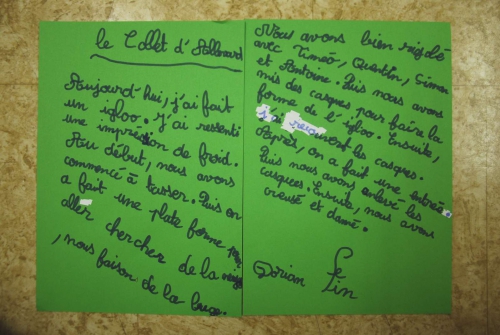 le Collet d'Allevard
Aujourd'hui, j'ai fait
un igloo. J'ai ressenti
une impression de froid.
Au début, nous avons
commencé à tasser. Puis on
a fait une plate forme pour
aller chercher de la neige
, nous faison de la luge.
Nous avons bien rigolé
avec Timéo, Quentin, Simon
et Antoine. Puis nous avons
mis des casques pour faire la
forme de l'igloo. Ensuite,
recouvert les casques.
Après, on a fait une entrée
Puis nous avons enlevé les
casques. Ensuite, nous avons
creusé et damé.
Dorian
Fin